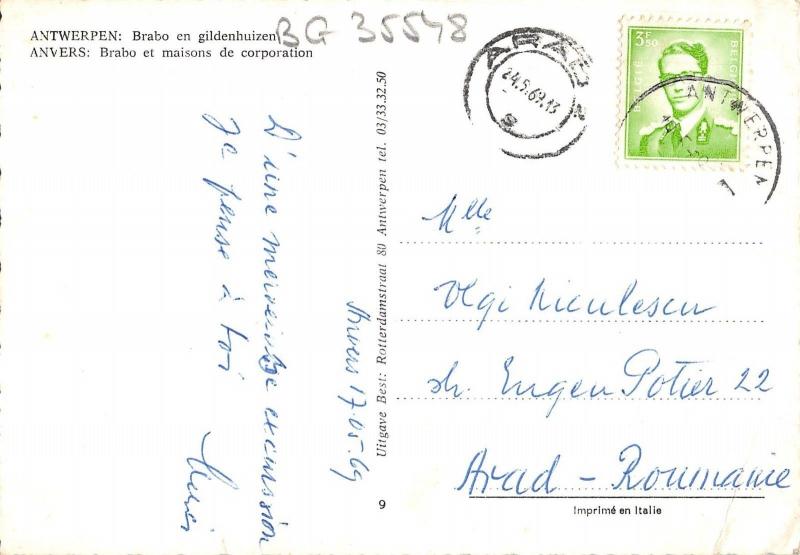 ANTWERPEN: Brabo en gildenhuizen
ANVERS: Brabo et maisons de corporation
BG 35548
ARAD
24.5.69.13
3F50
BELGIE
BELGIQUE
ANTWERPEN
1
D'une merveilleuse excursion
Je pense à toi
Anvers 17.05.69
Uitgave Best: Rotterdamstraat 80 Antwerpen tel. 03/33.32.50
9
Mlle
Niculescu
str. Eugen Potier 22
Arad - Roumanie
Imprimé en Italie